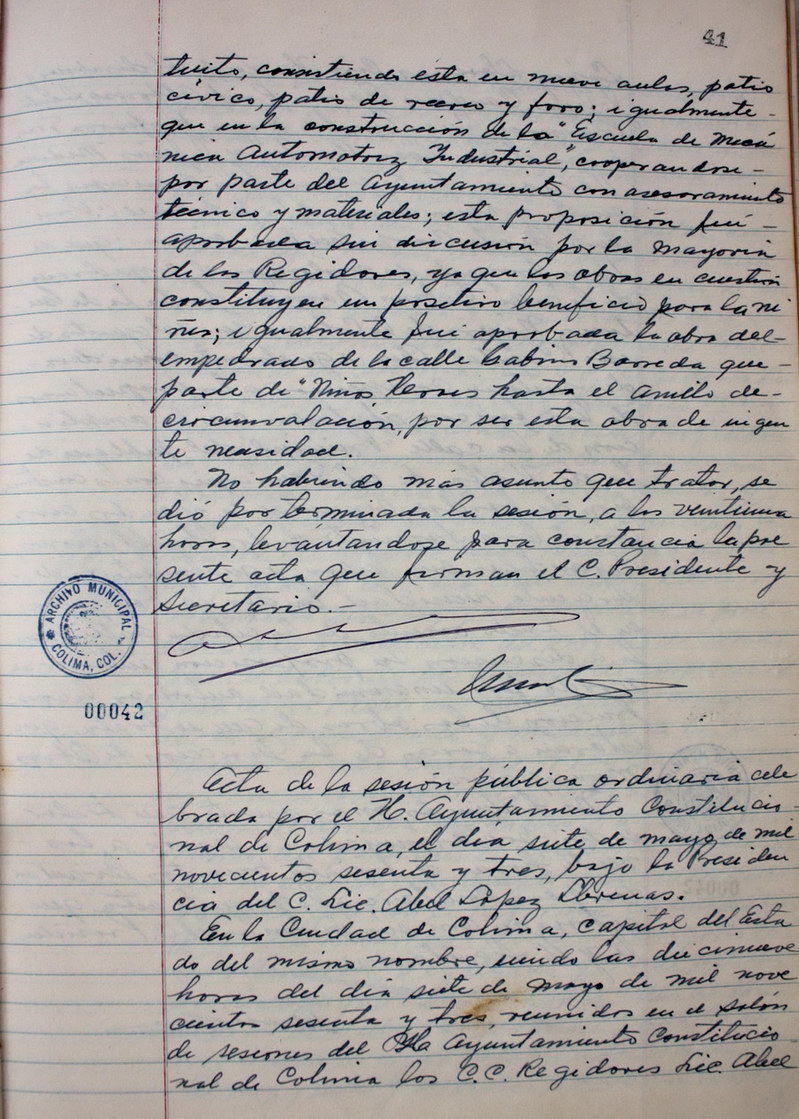 41
tuito, consistiendo ésta en nueve aulas, patio
cívico, patio de recreo y foro; igualmente -
que en la construcción de la "Escuela de Mecá
nica Automotriz Industrial", cooperandose -
por parte del Ayuntamiento con asesoramiento
técnico y materiales; esta proposición fué -
aprobada sin discusión por la mayoria
de los Regidores, ya que las obras en cuestión
constituyen un positivo beneficio para la ni
ñes; igualmente fué aprobada la obra del -
empedrado de la calle Gabino Barreda que -
parte de "Niños Heroes hasta el anillo de -
circunvalación, por ser esta obra de ingen
te necesidad.
No habiendo más asunto que tratar, se
dió por terminada la sesión, a las veintiuna
horas, levantandose para constancia la pre
sente acta que firman el C. Presidente y
Secretario.-
ARCHIVO MUNICIPAL
COLIMA, COL.
00042
Acta de la sesión pública ordinaria cele
brada por el H. Ayuntamiento Constitucio-
nal de Colima, el día siete de mayo de mil
novecientos sesenta y tres, bajo la Presiden
cia del C. Lic. Abel López Llerenas.
En la Ciudad de Colima, capital del Esta
do del mismo nombre, siendo las diecinueve
horas del día siete de mayo de mil nove
cientos sesenta y tres, reunidos en el salón
de sesiones del Ayuntamiento Constitucio
nal de Colima los C.C. Regidores Lic. Abel